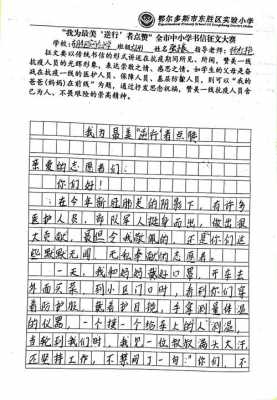 鄂尔多斯市东胜区实验小学
"我为最美'逆行'者点赞"全市中小学书信征文大赛
学校: 班级: 姓名: 指导老师:
征文要以传统书信的形式讲述在抗疫期间所见、所闻,赞美一线
抗疫人员的光辉形象,表达崇敬之情、感恩之情。如学生的父母是奋
战在抗疫一线的医护人员、保障人员、基层防控人员,则可以《我的爸
爸(妈妈)在前线》为题,通过抒发思念祝福,赞美一线抗疫人员舍己
为人、不畏艰险的崇高精神。
我为最美"逆行"者点赞
亲爱的志愿者们:
你们好!
在今年新冠肺炎的阴影下,有许多
医护人员,部队军人挺身而出,做出很
大贡献,最 令我敬佩的,还是你们这
些默默无闻、无私奉献的志愿者。
一天,我和妈妈戴好口罩,开车去
外面买菜,到小区门口时,看到你们穿
着防护服,戴着护目镜,手拿测量体温
的仪器,一个接一个给车上的人测温,
当轮到我们时,我见一位叔叔满头大汗,
还坚持工作,不禁问了一句:"你们,不